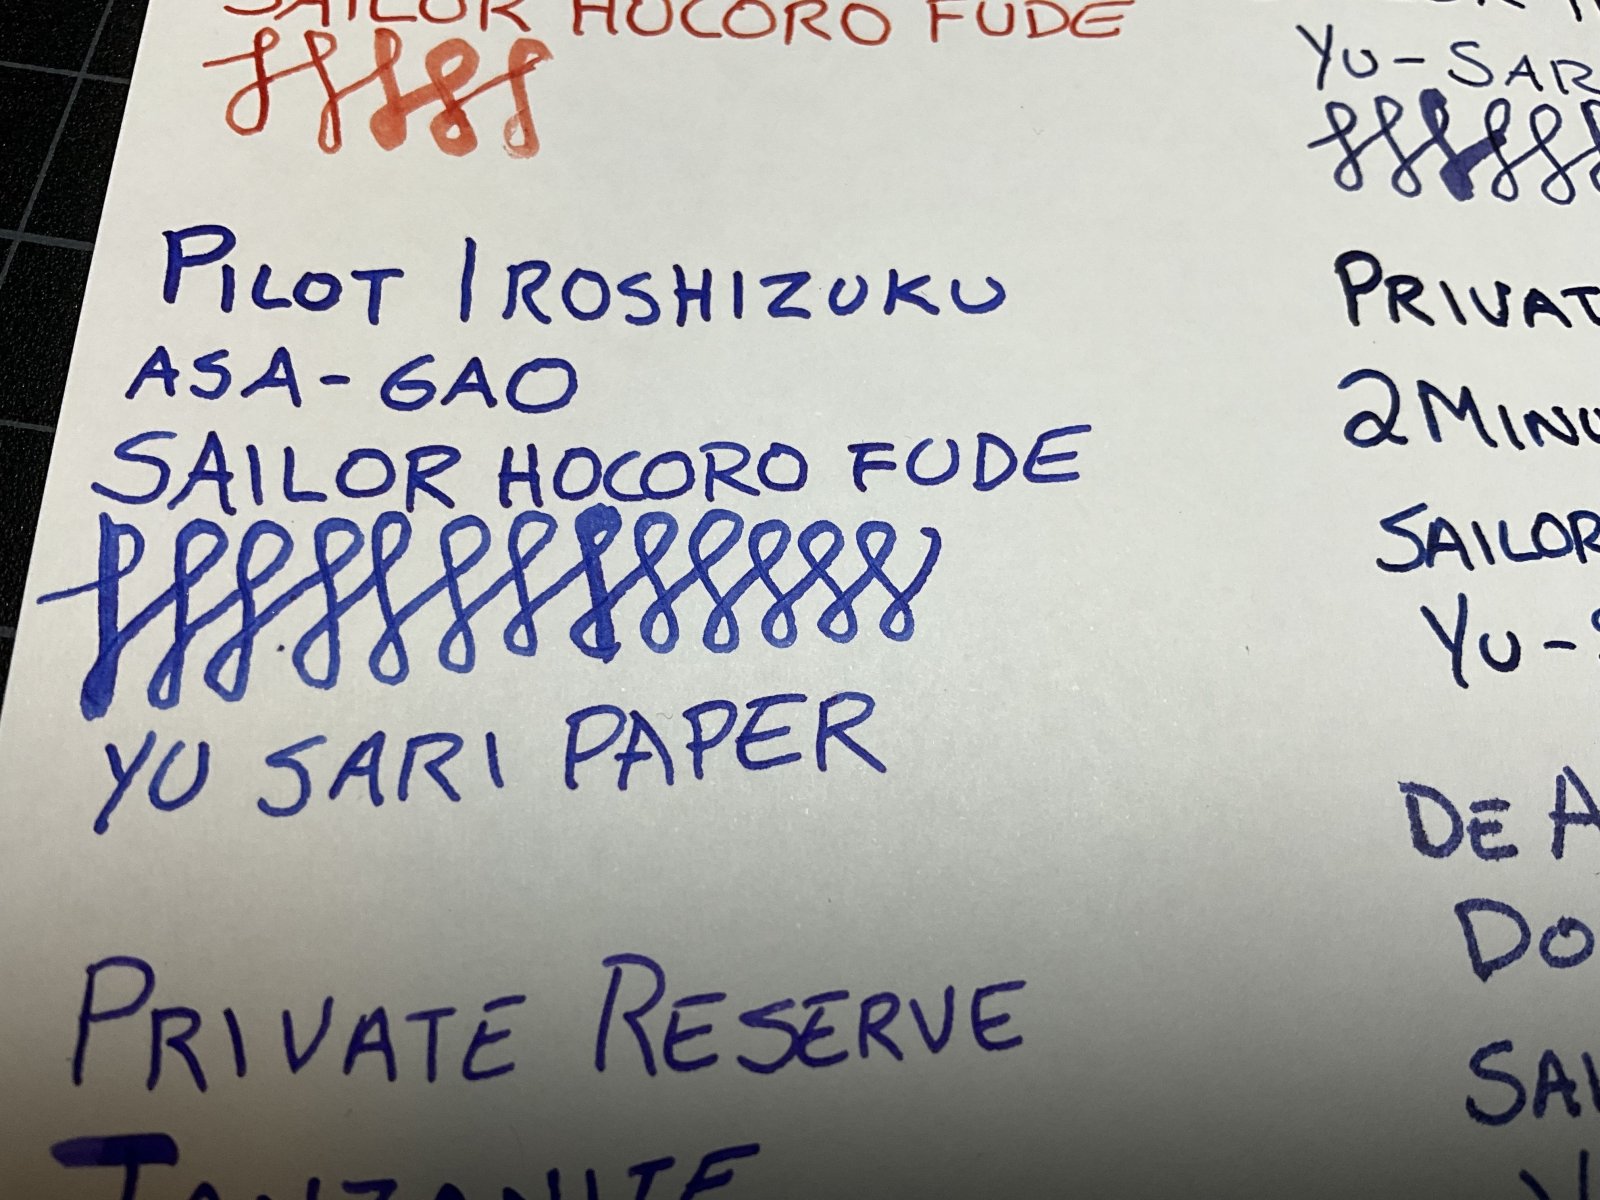 SAILOR HOCORO FUDE
PILOT IROSHIZUKU
ASA-GAO
SAILOR HOCORO FUDE
YU SARI PAPER
PRIVATE RESERVE
TANZANITE
YU-SAR
PRIVAT
2 MINU
SAILOR
YU-S
DE A
DO
SAI